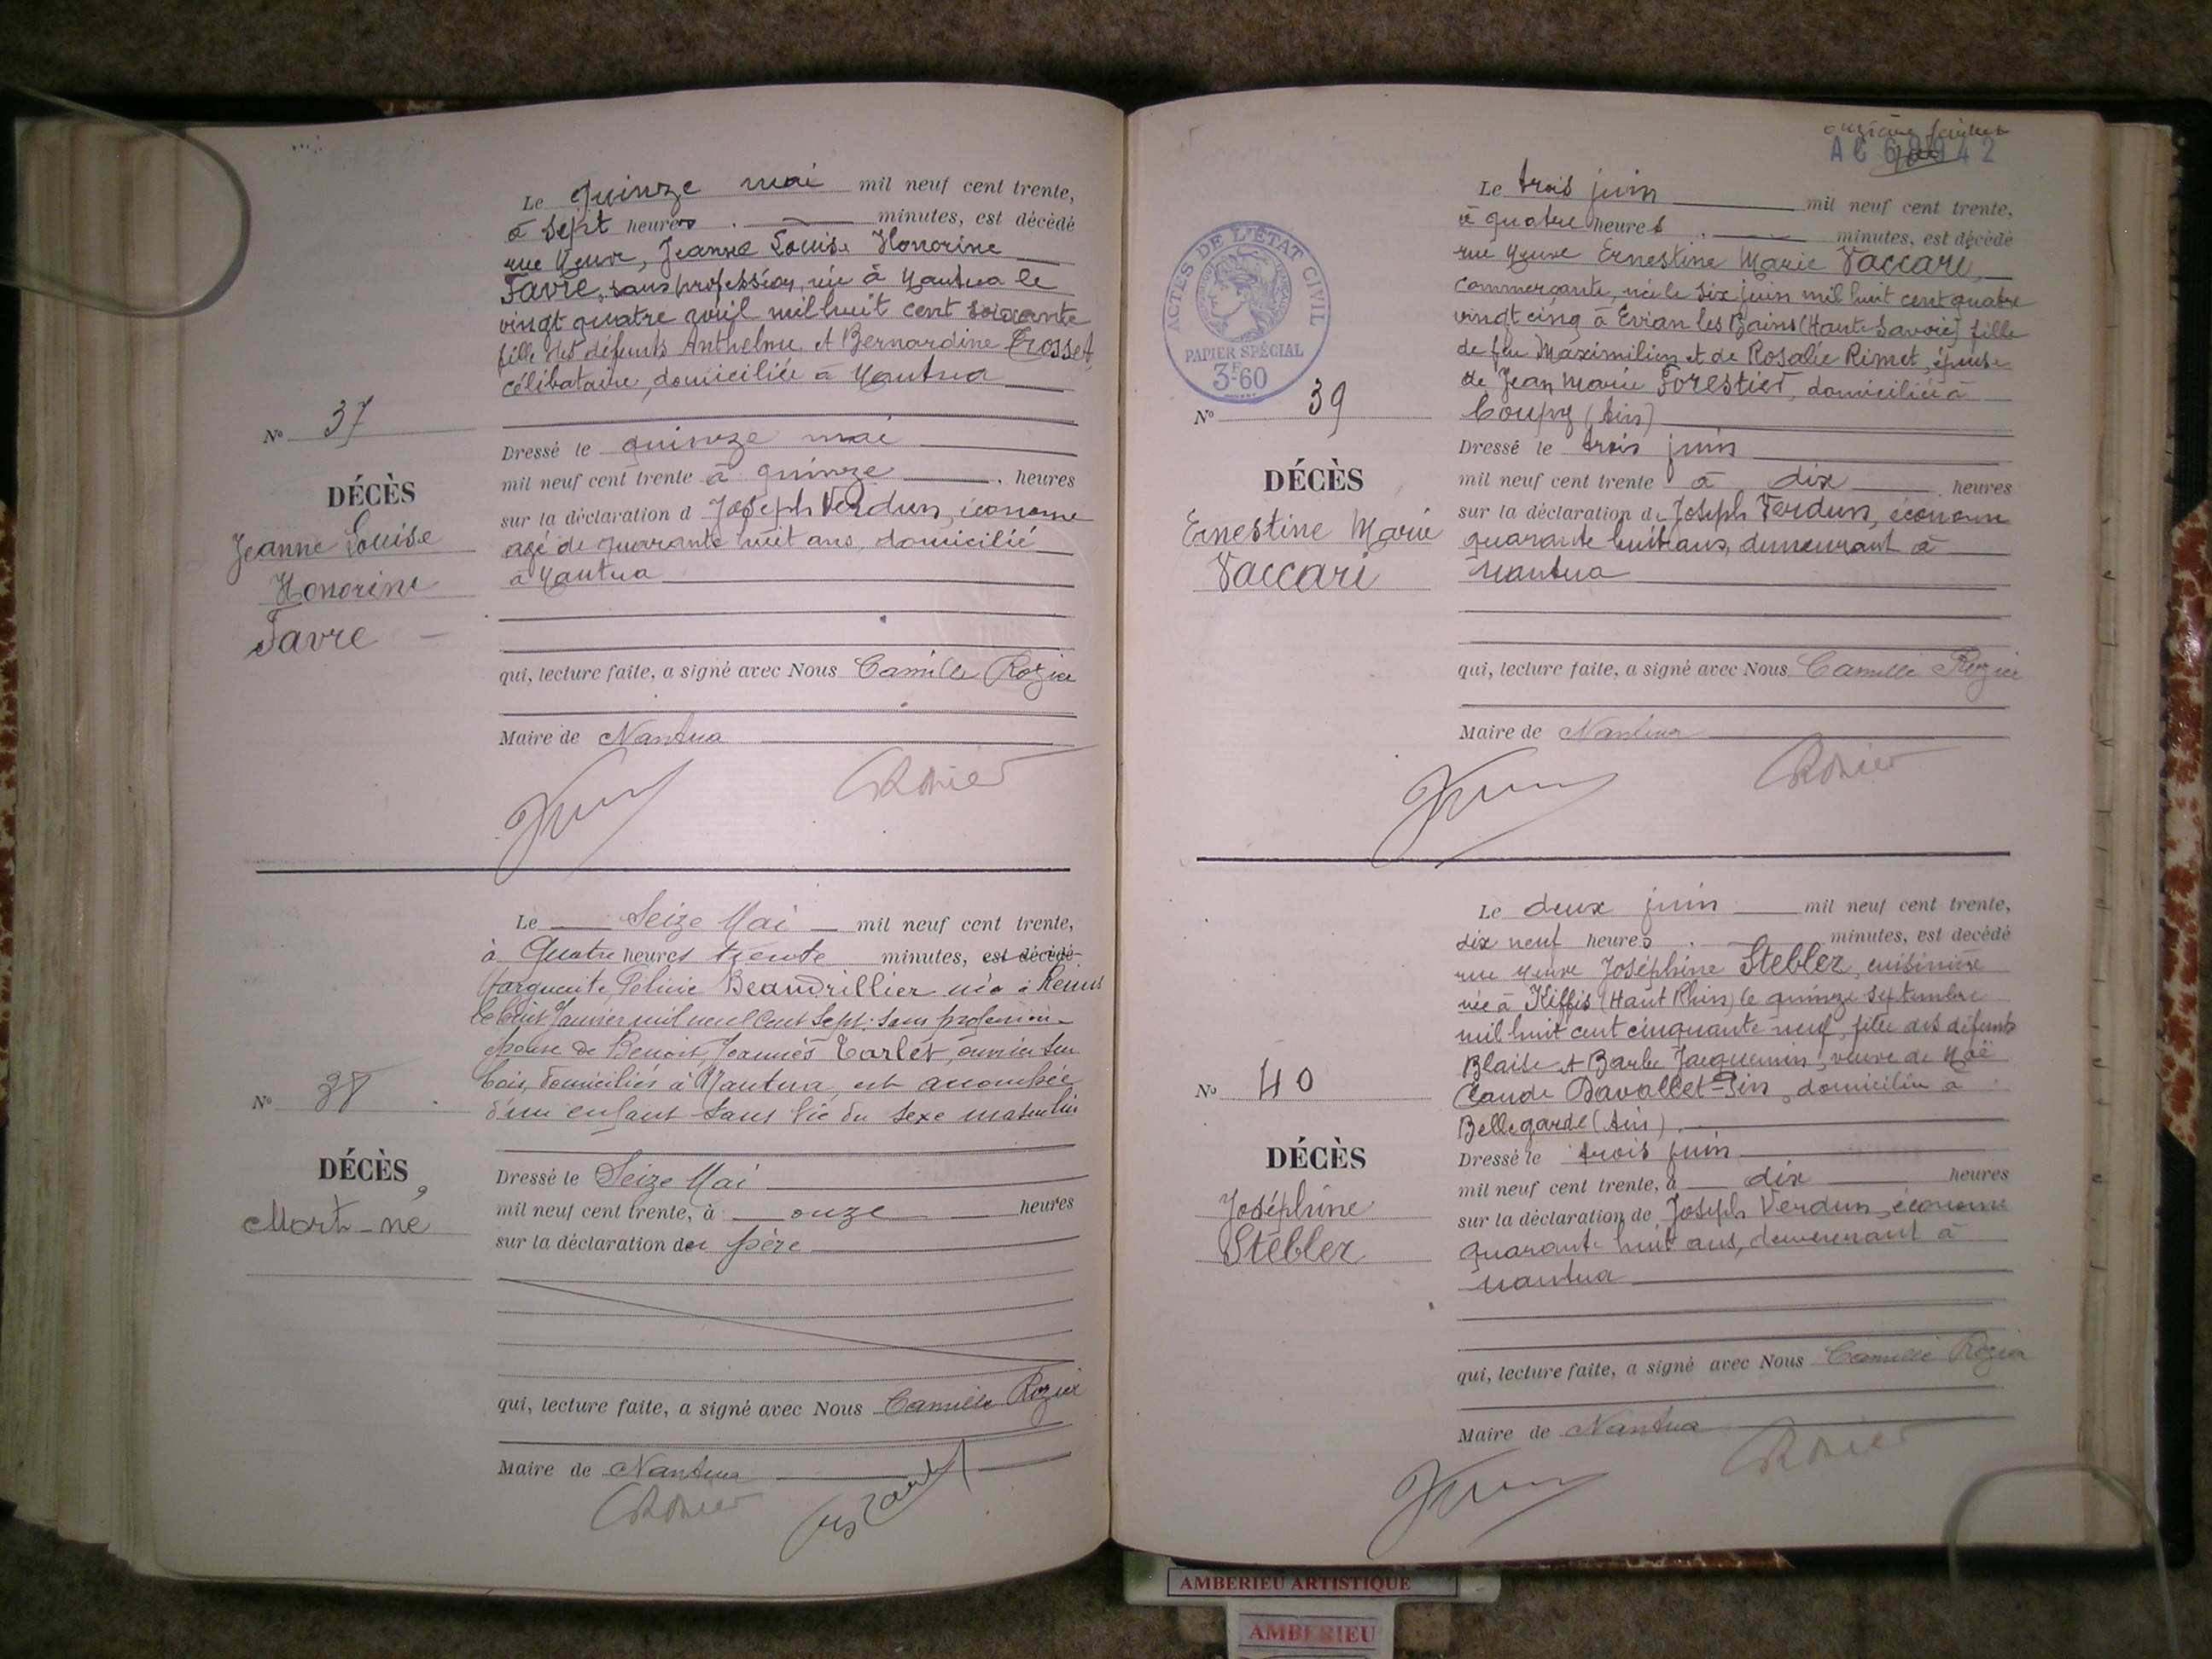 Le quinze mai mil neuf cent trente,
à sept heures . minutes, est décédé
rue Neuve, Jeanne Louise Honorine
Favre, sans profession, née à Nantua le
vingt quatre avril mil huit cent soixante
fille des défunts Anthelme et Bernardine Crosset,
célibataire, domiciliée à Nantua
No 37
DÉCÈS
Jeanne Louise
Honorine
Favre
Dressé le quinze mai
mil neuf cent trente à quinze heures
sur la déclaration d Joseph Verdun, économe
agé de quarante huit ans, domicilié
à Nantua
qui, lecture faite, a signé avec Nous Camille Rozier
Maire de Nantua
CRozier
Le Seize Mai mil neuf cent trente,
à Quatre heures trente minutes, est décédé
Marguerite Beaudrillier née à Reims
le huit Janvier mil neuf cent sept, sans profession
épouse de Benoit, Joannès Carlet, ouvrier sur
bois, domiciliés à Nantua, est accouchée
d'un enfant sans vie du sexe masculin
No 38
DÉCÈS
Mort-né
Dressé le Seize Mai
mil neuf cent trente, à onze heures
sur la déclaration du père
qui, lecture faite, a signé avec Nous Camille Rozier
Maire de Nantua
CRozier
onzième feuillet
AC 68942
ACTES DE L'ÉTAT CIVIL
PAPIER SPÉCIAL
3F60
Le trois juin mil neuf cent trente,
à quatre heures . minutes, est décédé
rue Neuve Ernestine Marie Vaccari,
commerçante, née le six juin mil huit cent quatre
vingt cinq à Evian les Bains (Haute Savoie) fille
de feu Maximilien et de Rosalie Rimet, épouse
de Jean Marie Forestier, domiciliée à
Coupy (Ain)
No 39
DÉCÈS
Ernestine Marie
Vaccari
Dressé le trois juin
mil neuf cent trente à dix heures
sur la déclaration de Joseph Verdun, économe
quarante huit ans, demeurant à
Nantua
qui, lecture faite, a signé avec Nous Camille Rozier
Maire de Nantua
CRozier
Le deux juin mil neuf cent trente,
dix neuf heures . minutes, est decédé
rue Neuve Joséphine Stebler, cuisinière
née à Kiffis (Haut Rhin) le quinze septembre
mil huit cent cinquante neuf, fille des défunts
Blaise et Barbe Jacquemin, veuve de Noë
Claude Davallet-Pin, domiciliée à
Bellegarde (Ain).
No 40
DÉCÈS
Joséphine
Stebler
Dressé le trois juin
mil neuf cent trente, à dix heures
sur la déclaration de Joseph Verdun, économe
quarante huit ans, demeurant à
Nantua
qui, lecture faite, a signé avec Nous Camille Rozier
Maire de Nantua
CRozier
AMBERIEU ARTISTIQUE
AMBERIEU